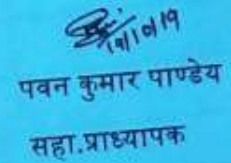 19/10/19
पवन कुमार पाण्डेय
सहा.प्राध्यापक